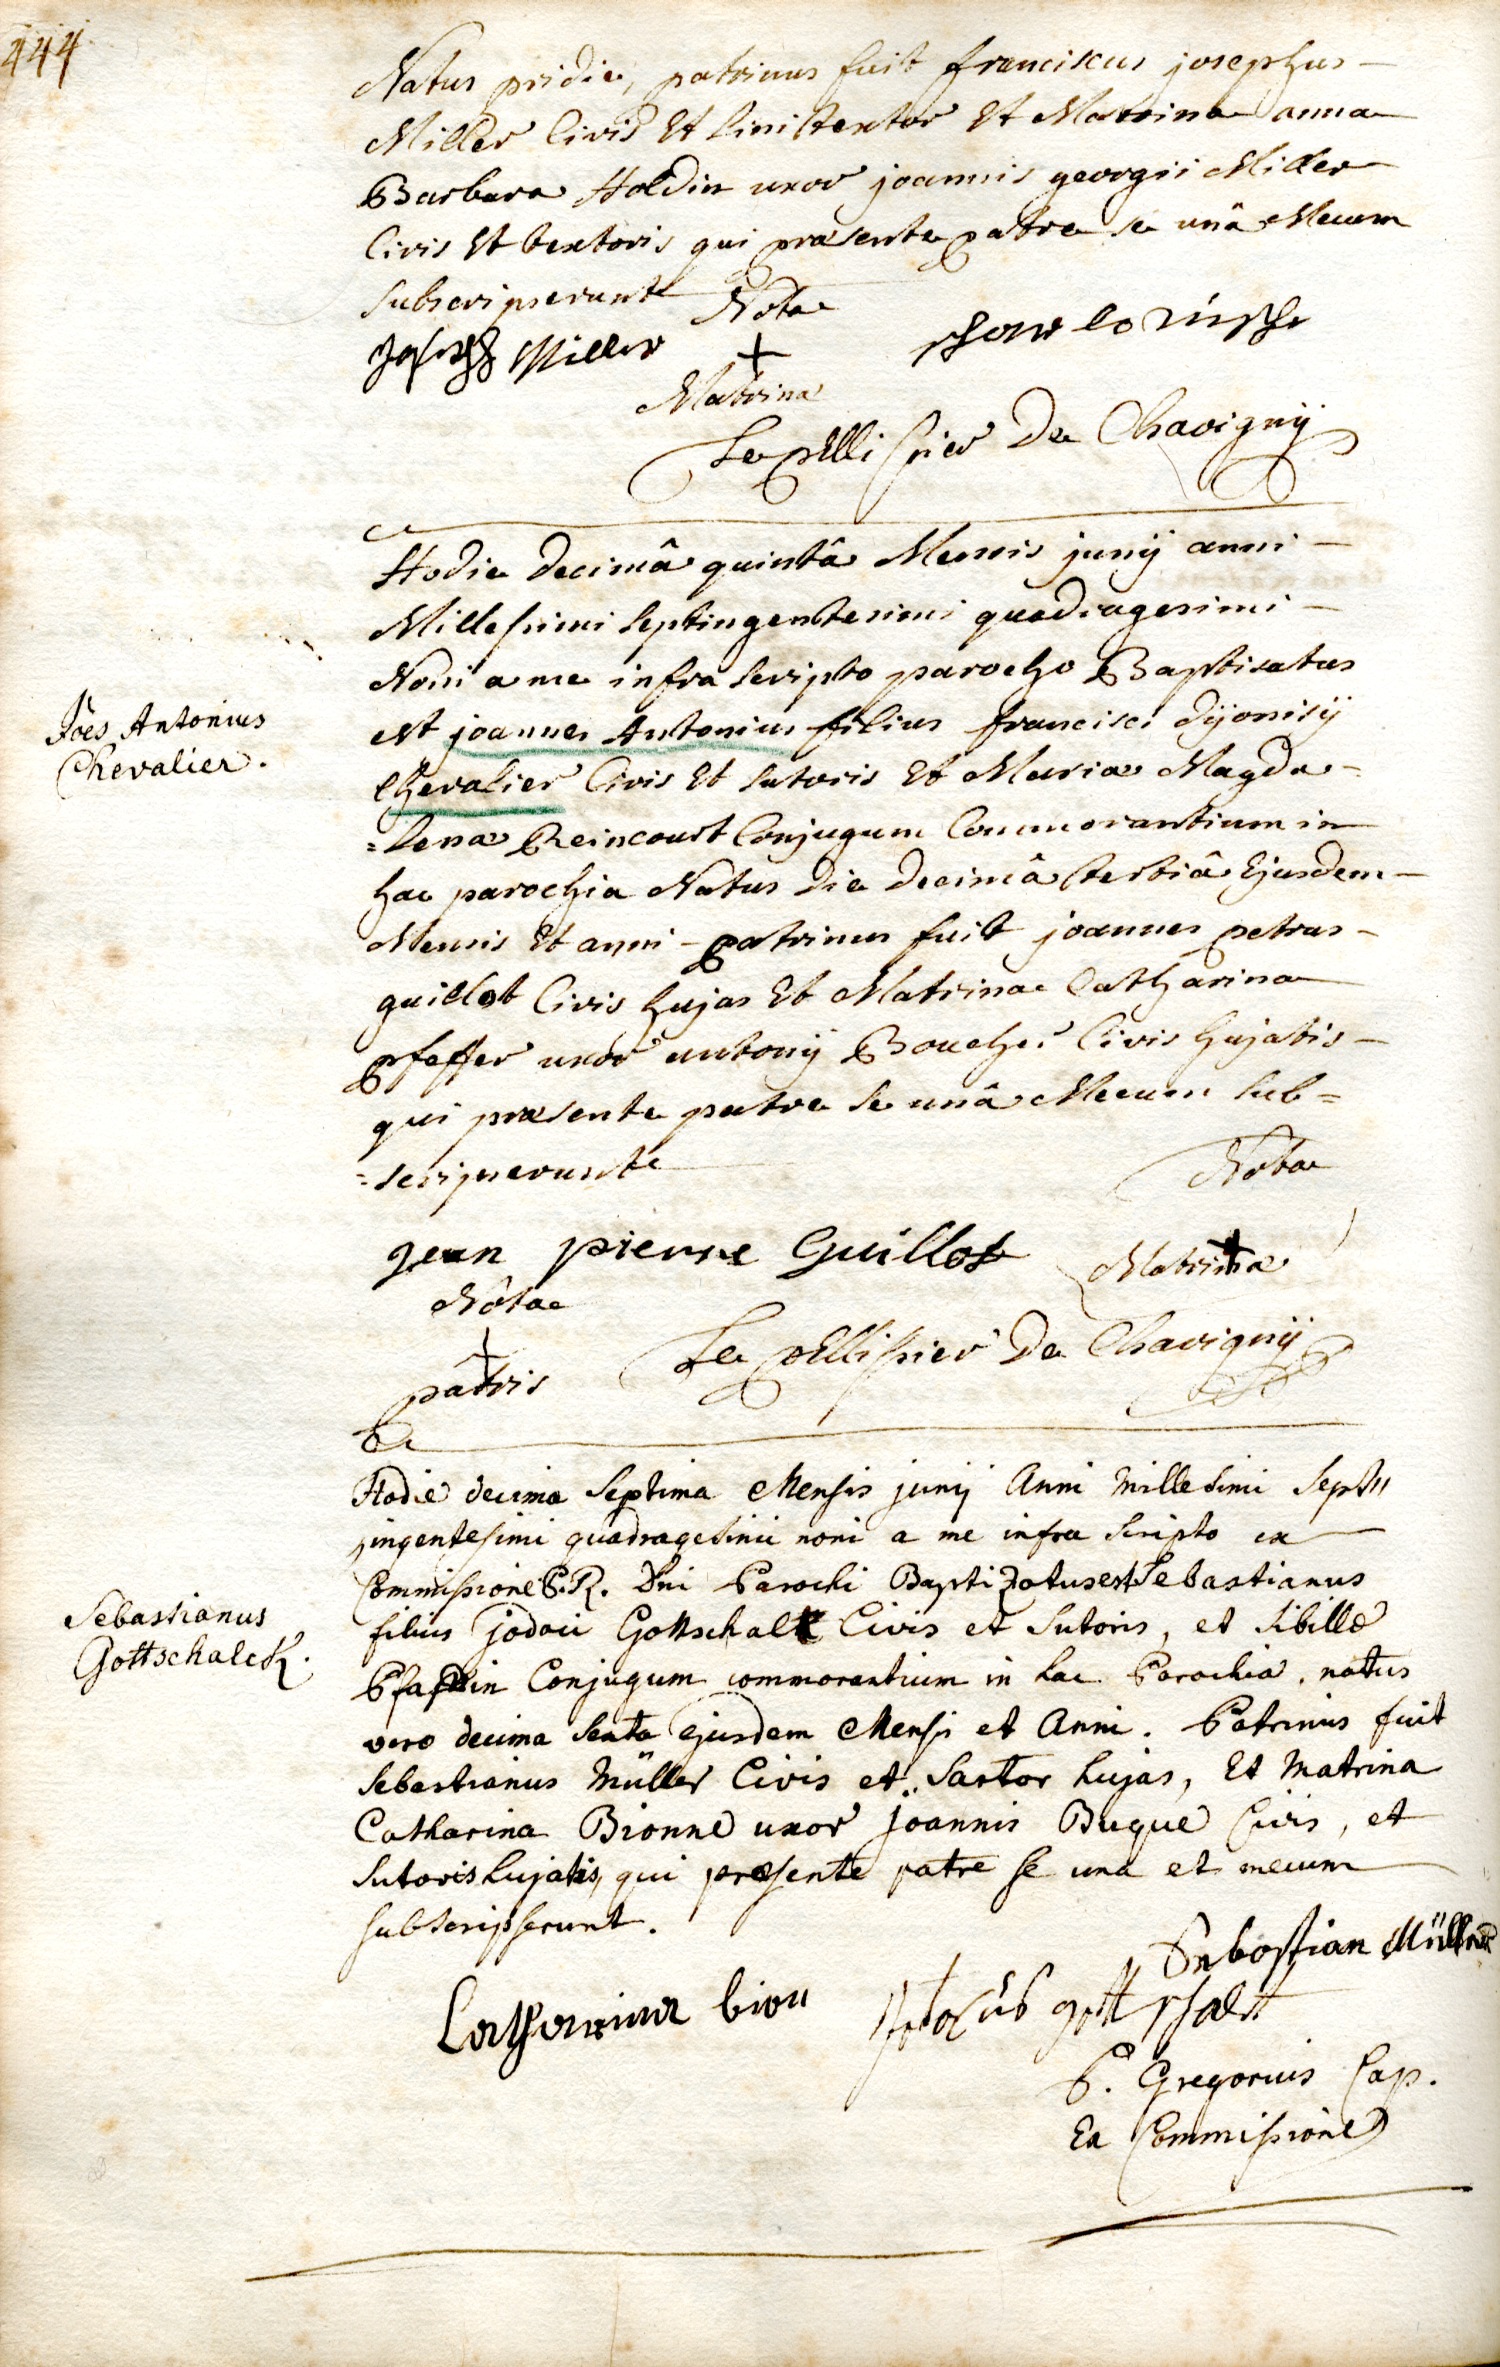 444
Natus pridie, patrinus fuit franciscus josephus –
Miller Civis Et linitextor Et Matrina anna
Barbara Holdin uxor joannis georgii Miller
Civis Et textoris qui praesente patre se unâ Mecum
subscripserunt Nota
Joseph Miller +
Matrinae
Le pellissier De Chavignÿ
Hodie Decimâ quintâ Mensis junÿ anni –
Millesimi septingentesimi quadragesimi –
Noni a me infra scripto parocho Baptisatus
est joannes Antonius filius francisci dÿonisÿ
Chevalier Civis Et sutoris Et Mariae Magda =
= lenae Reincourt Conjugum Commorantium in
hac parochia Natus die decimâ tertiâ Ejusdem –
Mensis Et anni – patrinus fuit joannes petrus –
guillot Civis hujas Et Matrina Catharina
pfeffer uxor antonÿ Bouché Civis hujatis –
qui praesente patre se unâ Mecum sub =
= scripserunt
Nota
jean pierre Guillot
+ Matrinae
Nôta
+
patris
Le pellissier De Chavignÿ
Joes Antonius
Chevalier.
Hodie decima septima Mensis junÿ Anni millesimi sept״
ingentesimi quadragesimi noni a me infra scripto ex
Commissione P. R. Dni Parochi Baptizatus est Sebastianus
filius jodoci Gottschalk Civis et sutoris, et Sibillae
Conjugum commorantium in hac Parochia, natus
vero decima sexta ejusdem Mensis et Anni. Patrinus fuit
Sebastianus Müller Civis et Sartor hujas, Et Matrina
Catharina Bionne uxor joannis Buque Civis, et
Sutoris hujatis, qui praesente patre se una et mecum
subscripserunt.
Sebastianus
Gottschalck.
Sebastian Müller
Catharina bion
gottschalk
P. Gregorius Cap.
Ex Commissione